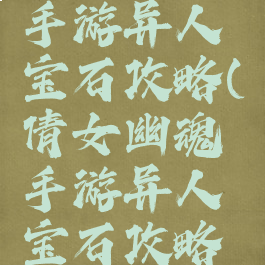 手游异人
宝石攻略(
倩女幽魂
手游异人
宝石攻略